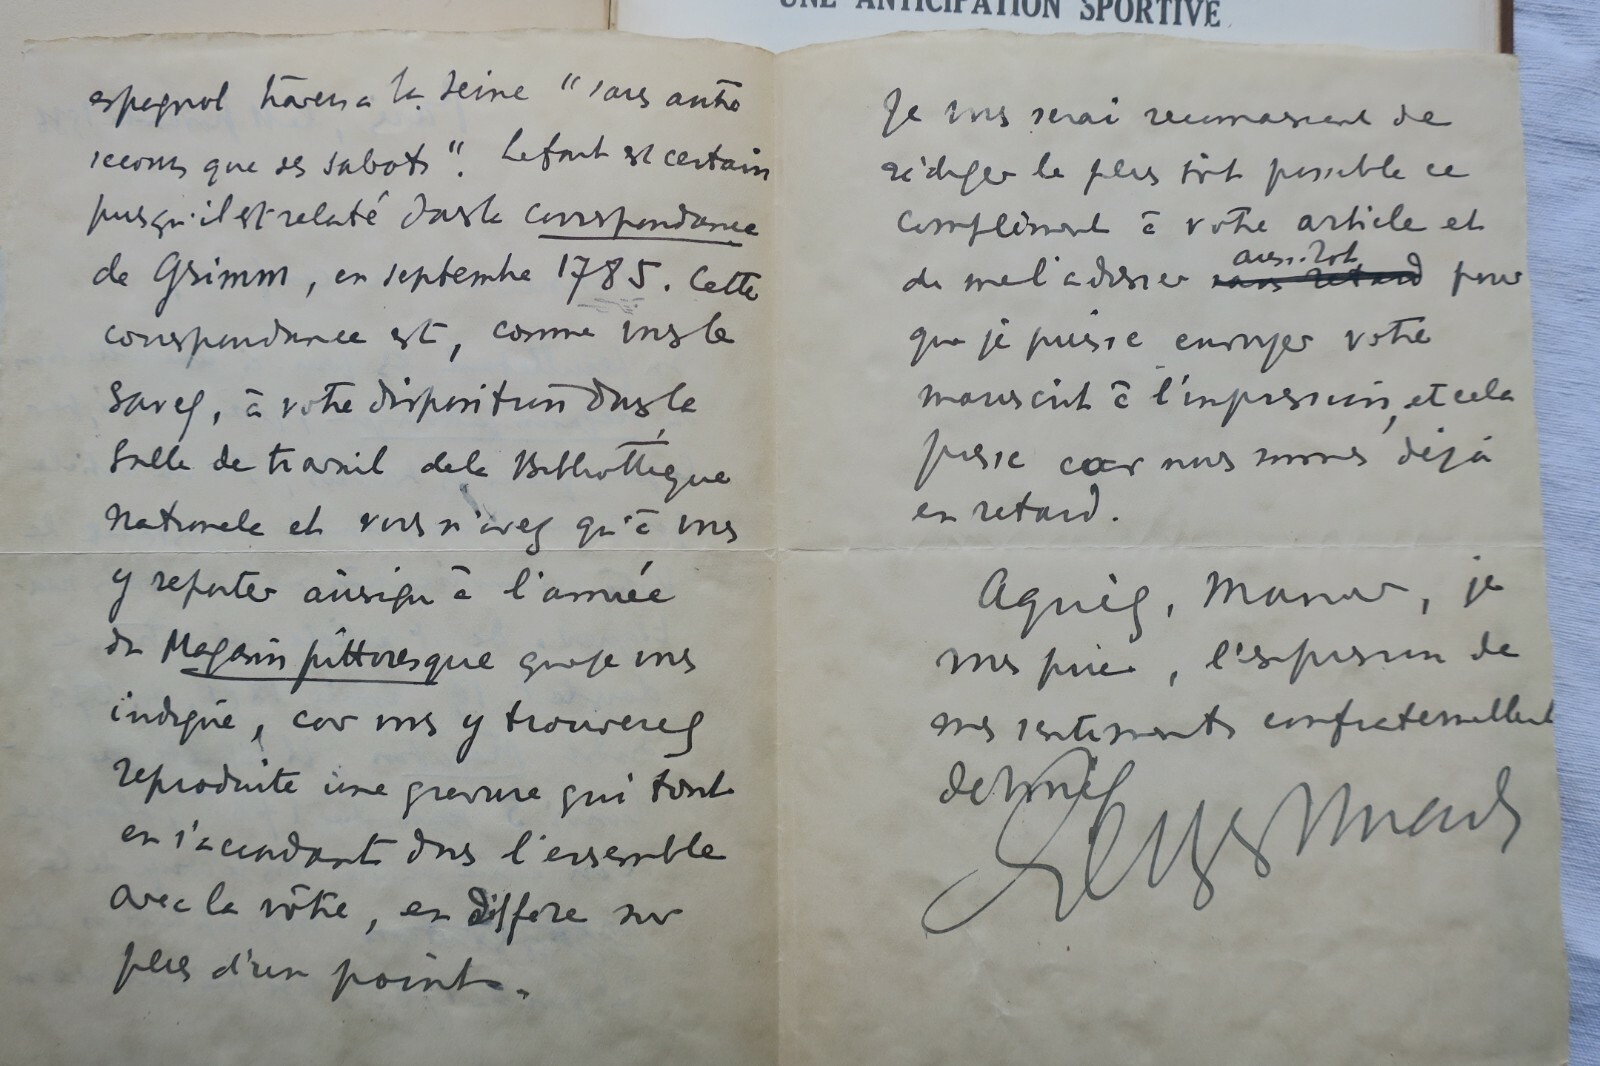 UNE ANTICIPATION SPORTIVE
espagnol traversa la Seine "sans autre
secours que ses sabots". Le fait est certain
puisqu'il est relaté dans la Correspondance
de Grimm, en septembre 1785. Cette
correspondance est, comme vous le
savez, à votre disposition dans la
Salle de travail de la Bibliothèque
Nationale et vous n'avez qu'à vous
y reporter ainsi qu'à l'année
du Magasin pittoresque que je vous
indique, car vous y trouverez
reproduite une gravure qui tout
en s'accordant dans l'ensemble
avec la vôtre, en diffère sur
plus d'un point.
Je vous serai reconnaissant de
rédiger le plus tôt possible ce
complément à votre article et
de me l'adresser sans retard aussitôt pour
que je puisse envoyer votre
manuscrit à l'impression, et cela
presse car nous sommes déjà
en retard.
Agréez, Monsieur, je
vous prie, l'expression de
mes sentiments confraternellement
dévoués